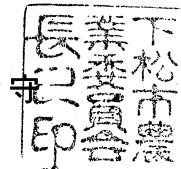 下松市農
業委員会
長之印
守